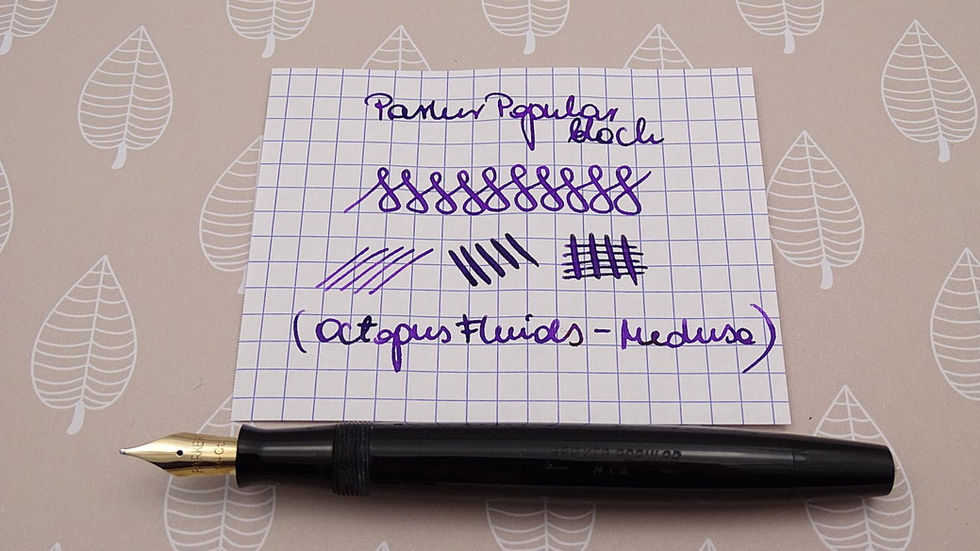 Parker Popular
black
(Octopus Fluids – Meduse)
PARKER
14 Ct
PARKER POPULAR